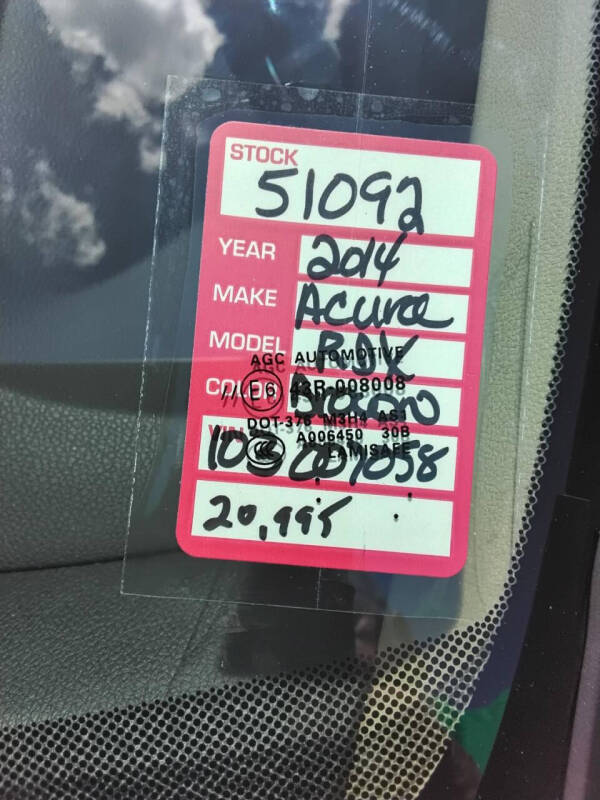 STOCK
51092
YEAR 2014
MAKE Acura
MODEL RDX
AGC AUTOMOTIVE
COLOR Brown
43R-008008
DOT-376 M3H4 AS1
VIN
A006450 30B
LAMISAFE
20,995